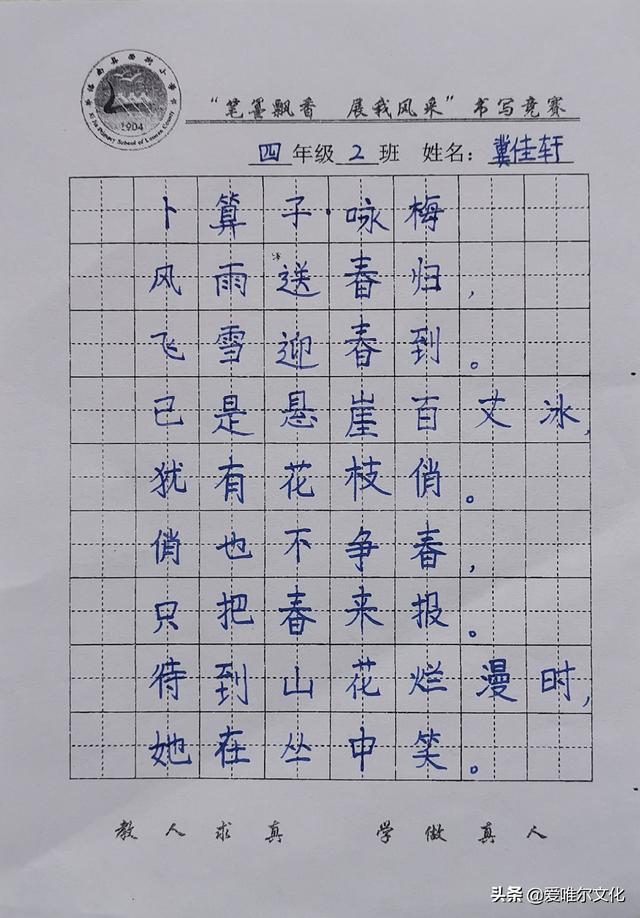 洛南县西街小学
Xi Jie Primary School of Luonan County
1904
“笔墨飘香 展我风采”书写竞赛
四年级2班 姓名：冀佳轩
卜算子·咏梅
风雨送春归，
飞雪迎春到。
已是悬崖百丈冰，
犹有花枝俏。
俏也不争春，
只把春来报。
待到山花烂漫时，
她在丛中笑。
教人求真 学做真人
头条 @爱唯尔文化